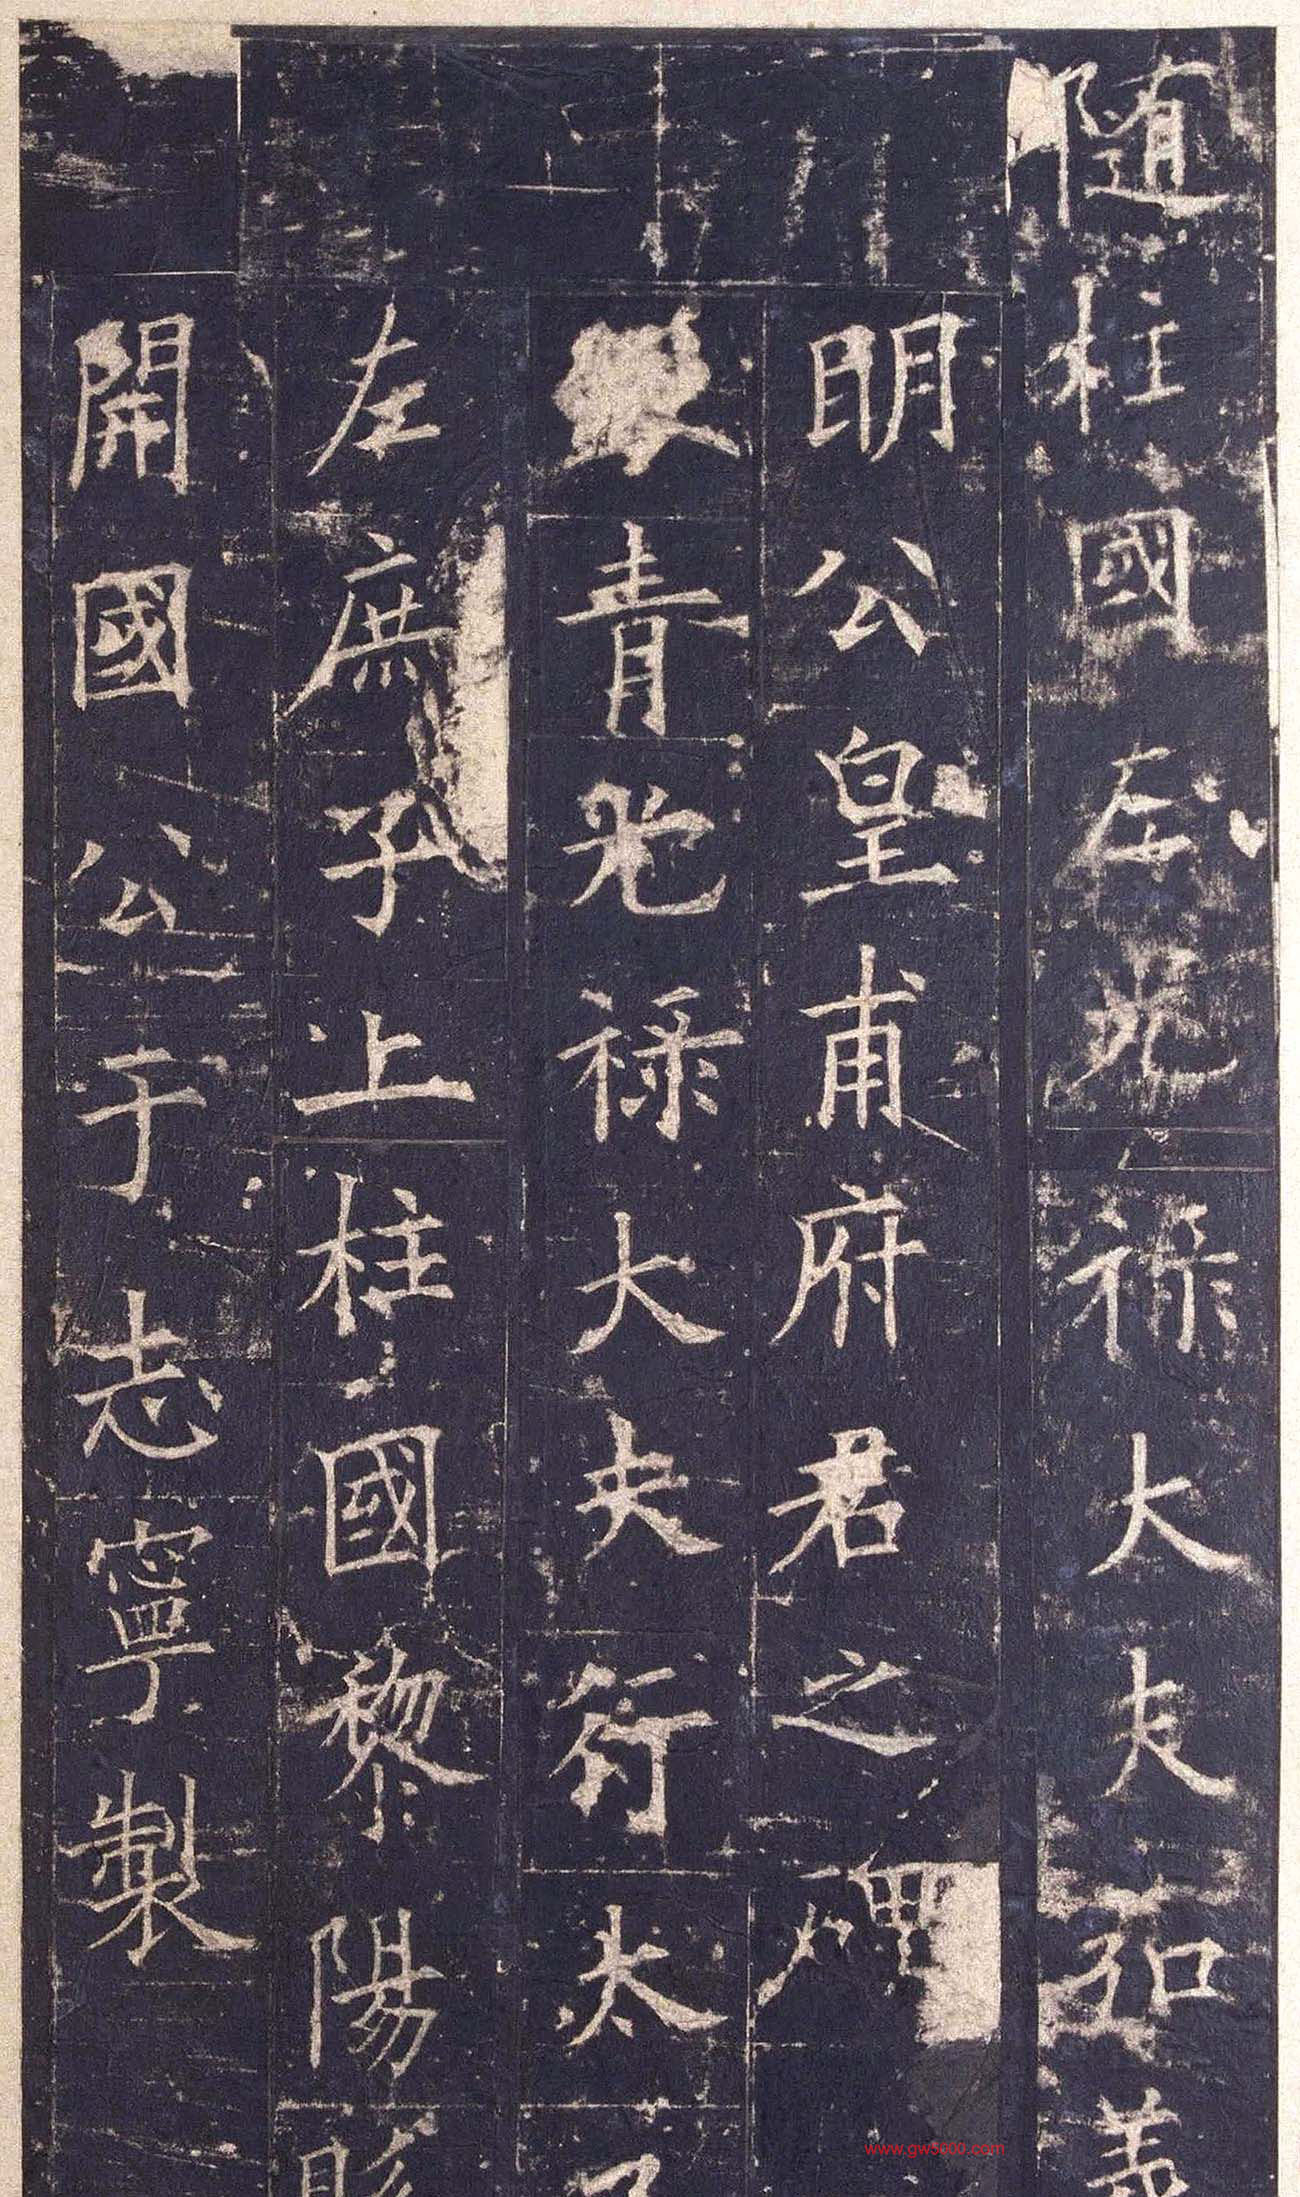 隨柱國左光祿大夫弘義
明公皇甫府君之碑
銀青光祿大夫行太子
左庶子上柱國黎陽縣
開國公于志寧製
www.gw5000.com